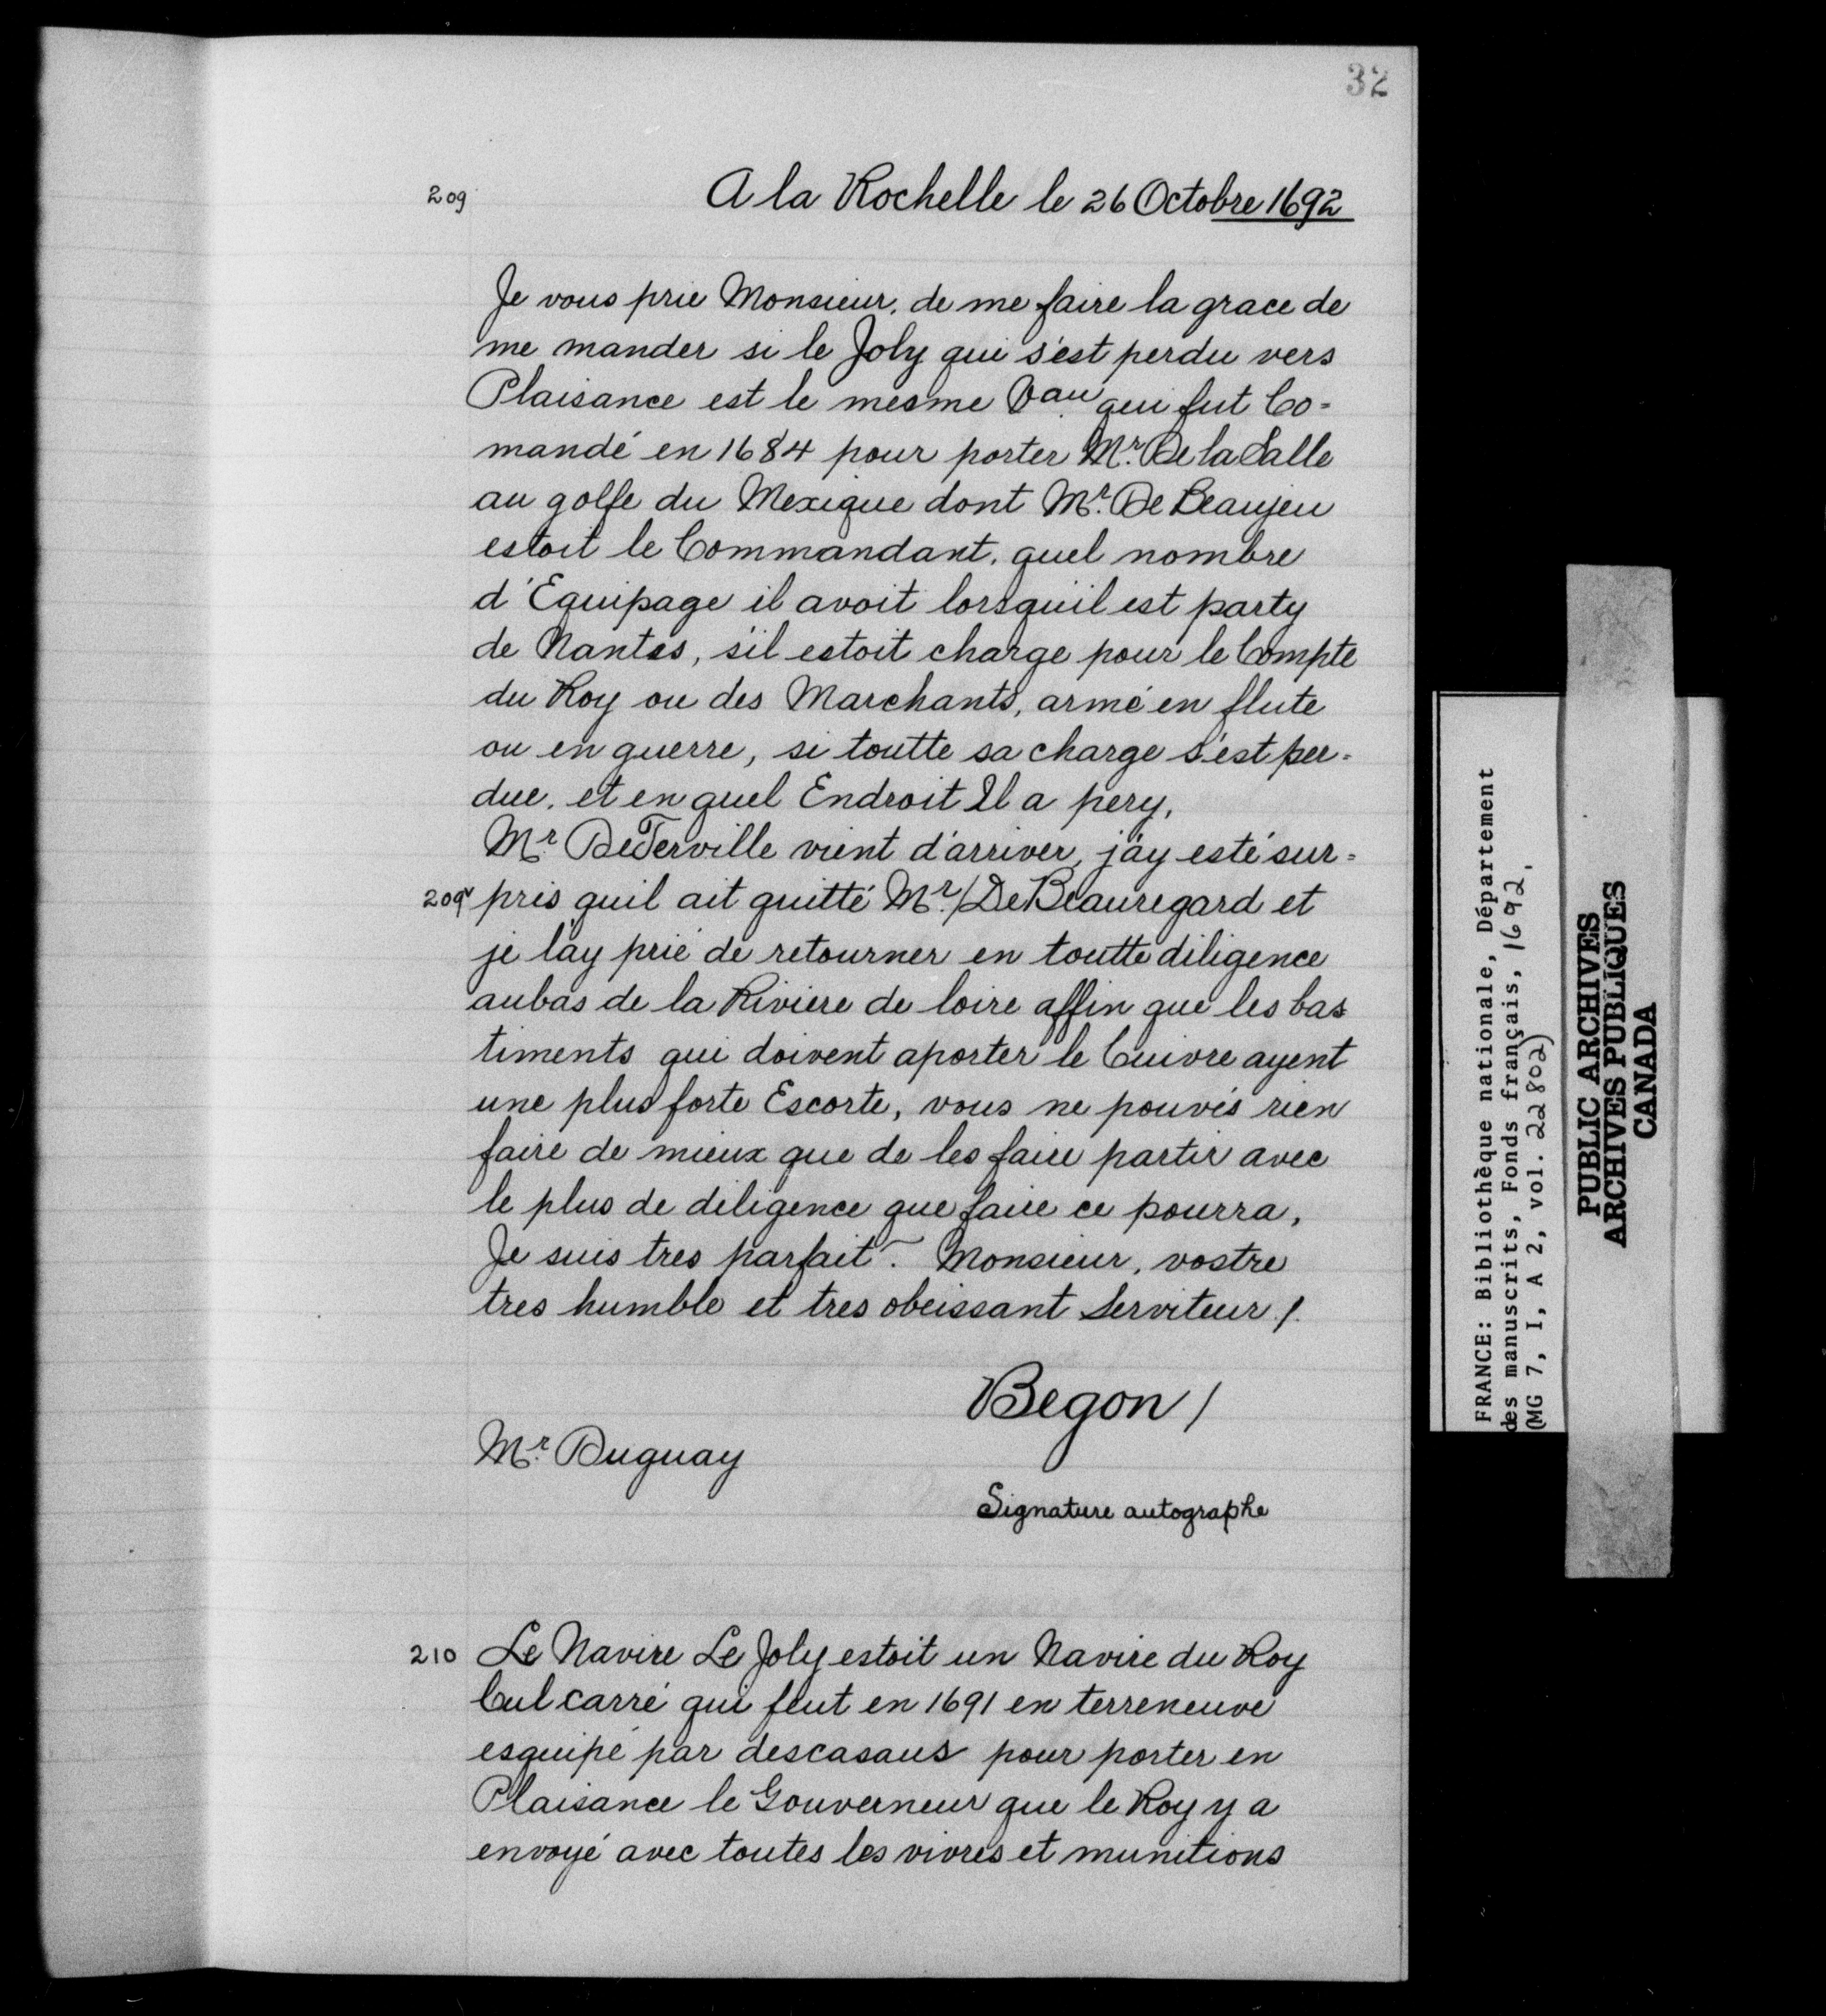 32
209 A la Rochelle le 26 Octobre 1692
Je vous prie Monsieur, de me faire la grace de
me mander si le Joly qui s'est perdu vers
Plaisance est le mesme Vau qui fut Co=
mandé en 1684 pour porter Mr. De la Salle
au golfe du Mexique dont Mr. De Beaujeu
estoit le Commandant, quel nombre
d'Equipage il avoit lorsqu'il est party
de Nantes, s'il estoit charge pour le Compte
du Roy ou des Marchants, armé en flute
ou en guerre, si toutte sa charge s'est per=
due, et en quel Endroit Il a pery,
Mr. De Terville vient d'arriver, j'ay esté sur=
209v pris quil ait quitté Mr./De Beauregard et
je l'ay prié de retourner en toutte diligence
aubas de la Riviere de loire affin que les bas
timents qui doivent aporter le Cuivre ayent
une plus forte Escorte, vous ne pouvés rien
faire de mieux que de les faire partir avec
le plus de diligence que faire ce pourra,
Je suis tres parfait~. Monsieur, vostre
tres humble et tres obeissant Serviteur ./.
Begon /
Mr. Duguay
Signature autographe
210 Le Navire Le Joly estoit un Navire du Roy
Cul carré qui feut en 1691 en terreneuve
esquipé par descasaus pour porter en
Plaisance le Gouverneur que le Roy y a
envoyé avec toutes les vivres et munitions
FRANCE: Bibliothèque nationale, Département
des manuscrits, Fonds français, 1692,
(MG 7, I, A 2, vol. 22802)
PUBLIC ARCHIVES
ARCHIVES PUBLIQUES
CANADA